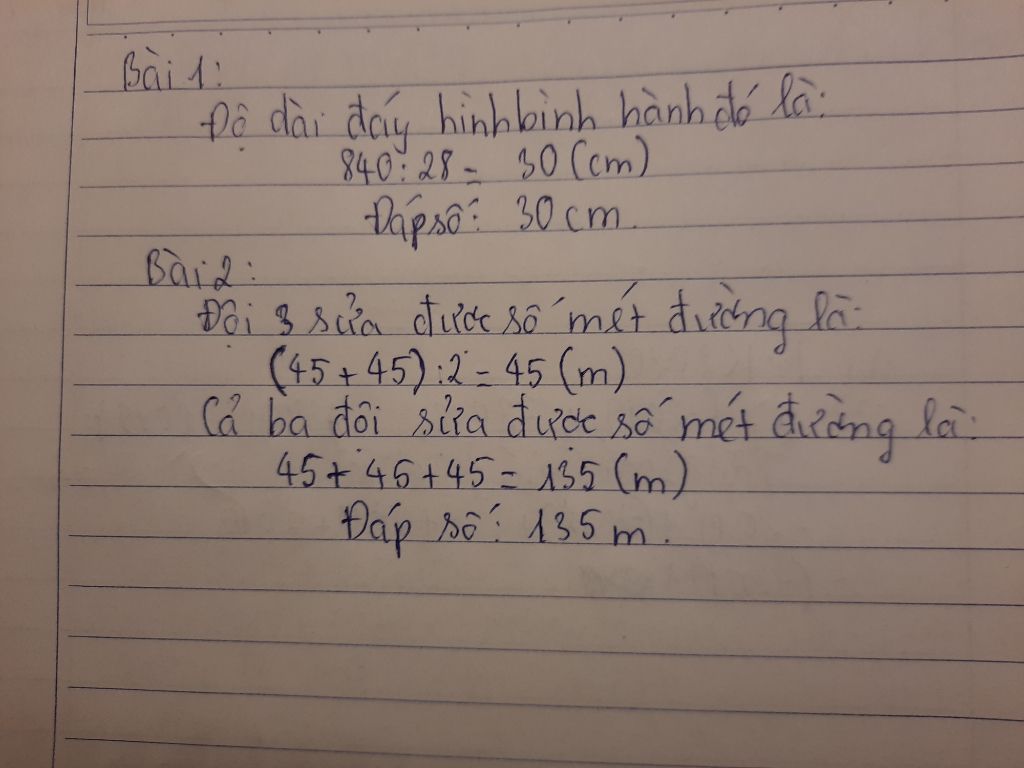 Bài 1:
Độ dài đáy hình bình hành đó là:
840 : 28 = 30 (cm)
Đáp số: 30 cm.
Bài 2:
Đội 3 sửa được số mét đường là:
(45 + 45) : 2 = 45 (m)
Cả ba đội sửa được số mét đường là:
45 + 45 + 45 = 135 (m)
Đáp số: 135 m.